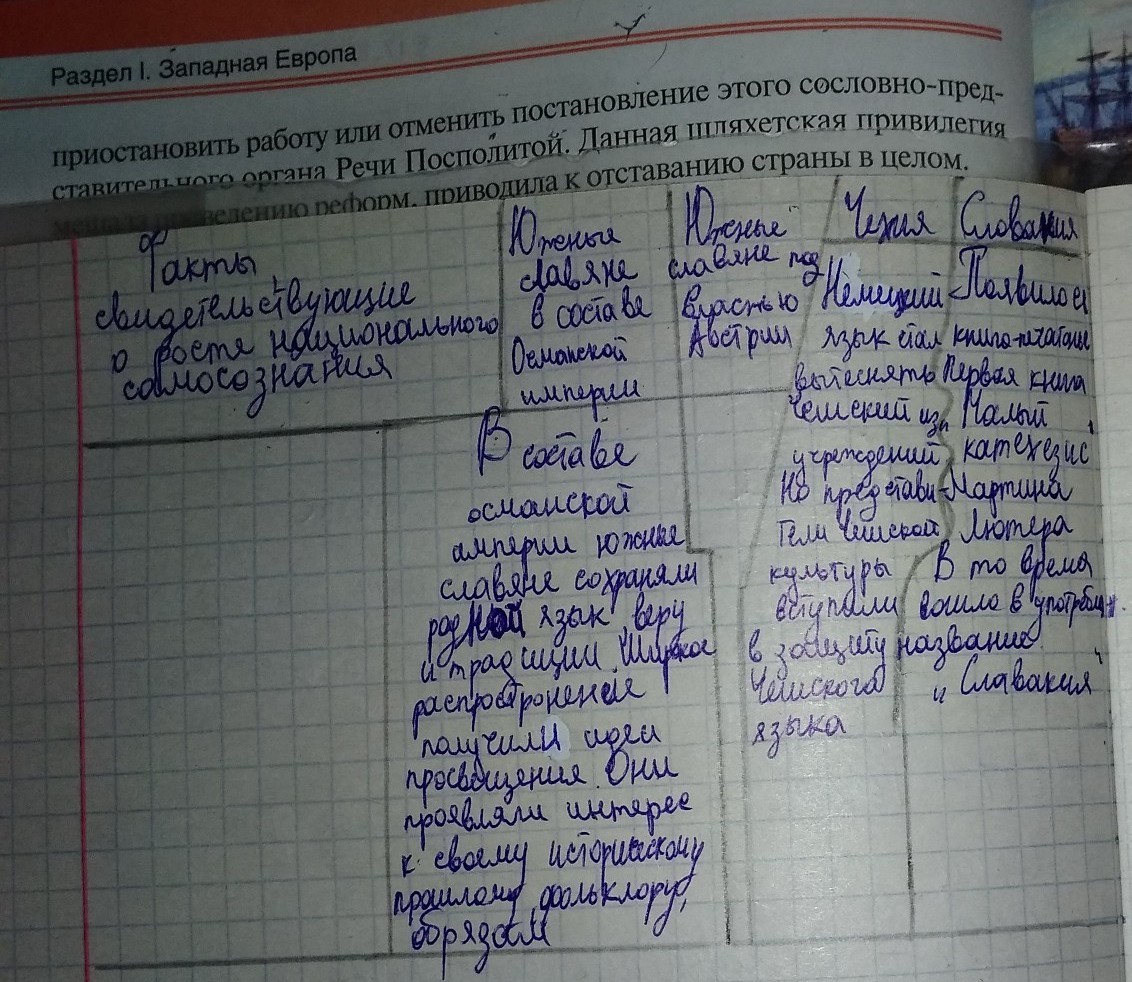 Раздел I. Западная Европа
приостановить работу или отменить постановление этого сословно-пред-
ставительного органа Речи Посполитой. Данная шляхетская привилегия
проведению реформ, приводила к отставанию страны в целом.
Факты,
свидетельствующие
о росте национального
самосознания
Южные
славяне
в составе
Османской
империи
Южные
славяне под
властью
Австрии
Чехия
Словакия
В составе
османской
империи южные
славяне сохраняли
родной язык веру
и традиции. Широкое
распространение
получили идеи
просвещения. Они
проявляли интерес
к своему историческому
прошлому, фольклору,
обрядам
Немецкий
язык стал
вытеснять
чешский из
учреждений
Но представи-
тели чешской
культуры
вступали
в защиту
Чешского
языка
Появилось
книго-печатание
Первая книга
Малый
катехезис
Мартина
Лютера
В то время
вошло в употреблен.
название
и Славакия